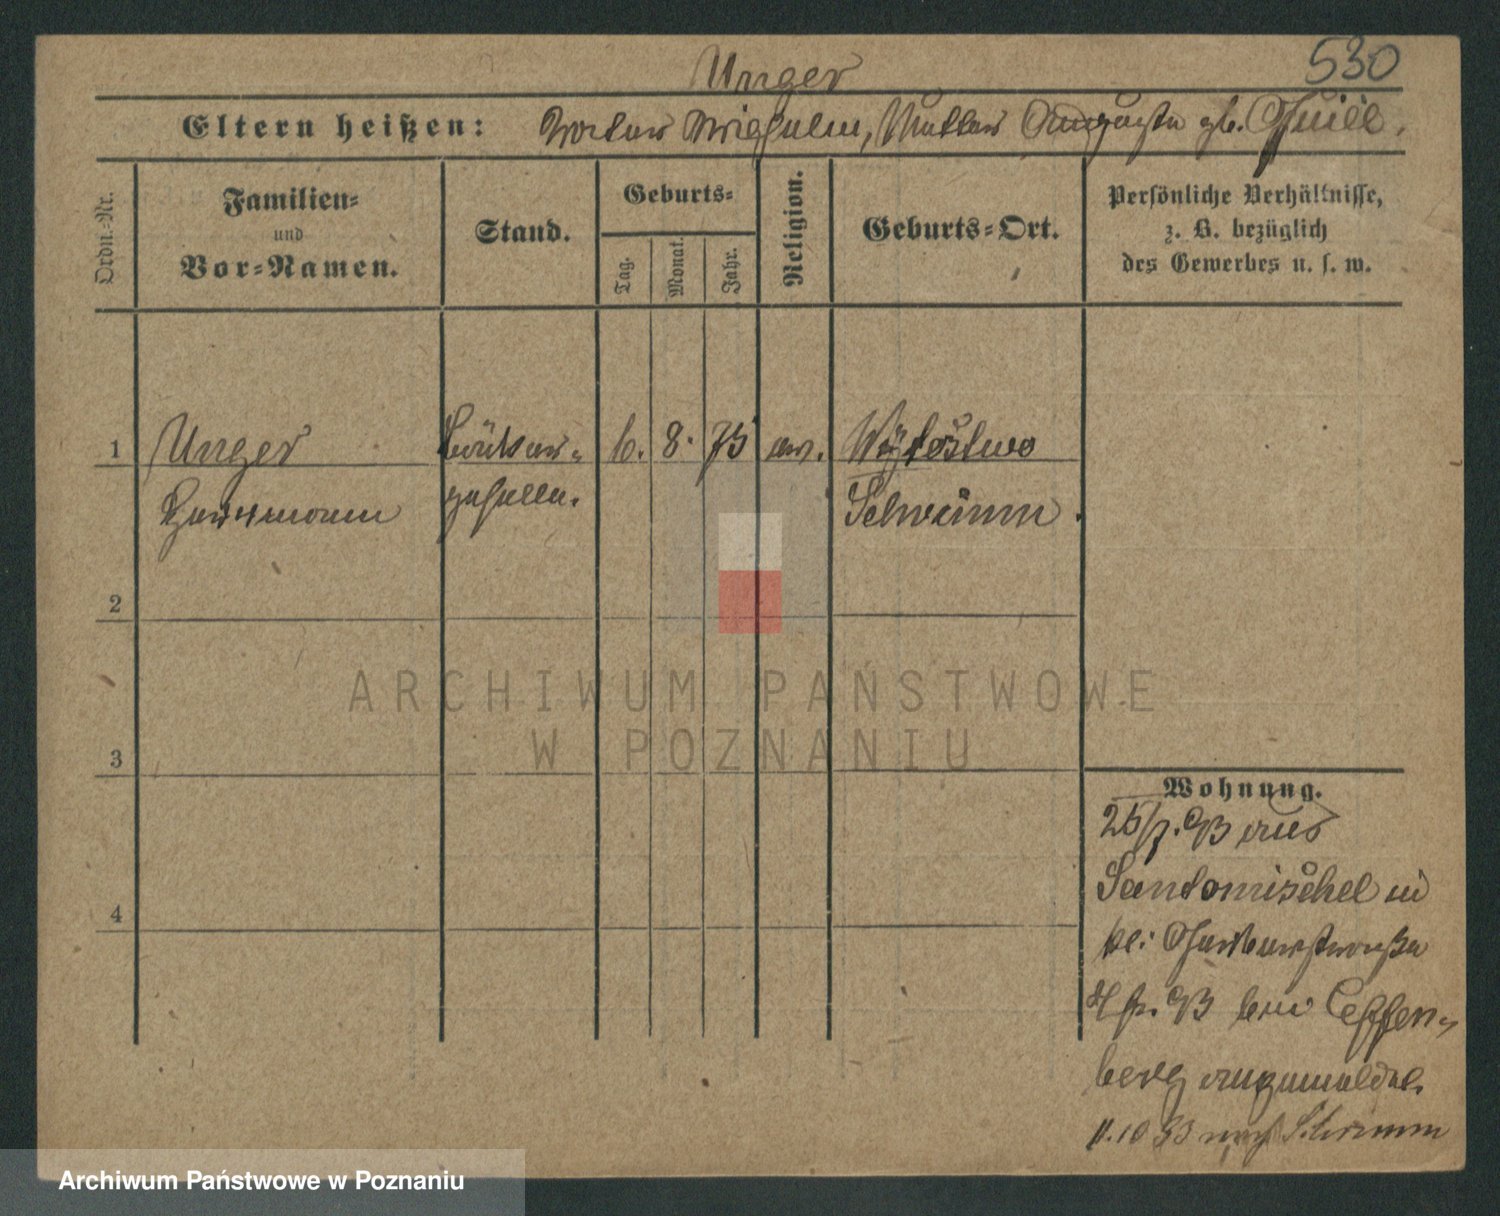 530
Unger
Eltern heißen: Vater Wilhelm, Mutter Auguste gb.
Ordn.-Nr.
Familien-
und
Vor-Namen.
Stand.
Geburts-
Tag.
Monat.
Jahr.
Religion.
Geburts-Ort.
Persönliche Verhältnisse,
z. B. bezüglich
des Gewerbes u. s. w.
1 Unger Bäcker- 6. 8. 75 ev.
Herrmann geselle. Schrimm
2
3
4
Wohnung.
aus
Santomischel in
bei Gerberstraße
bei Effen-
berg angemeldet
11.10 93 nach Schrimm
ARCHIWUM PAŃSTWOWE
W POZNANIU
Archiwum Państwowe w Poznaniu